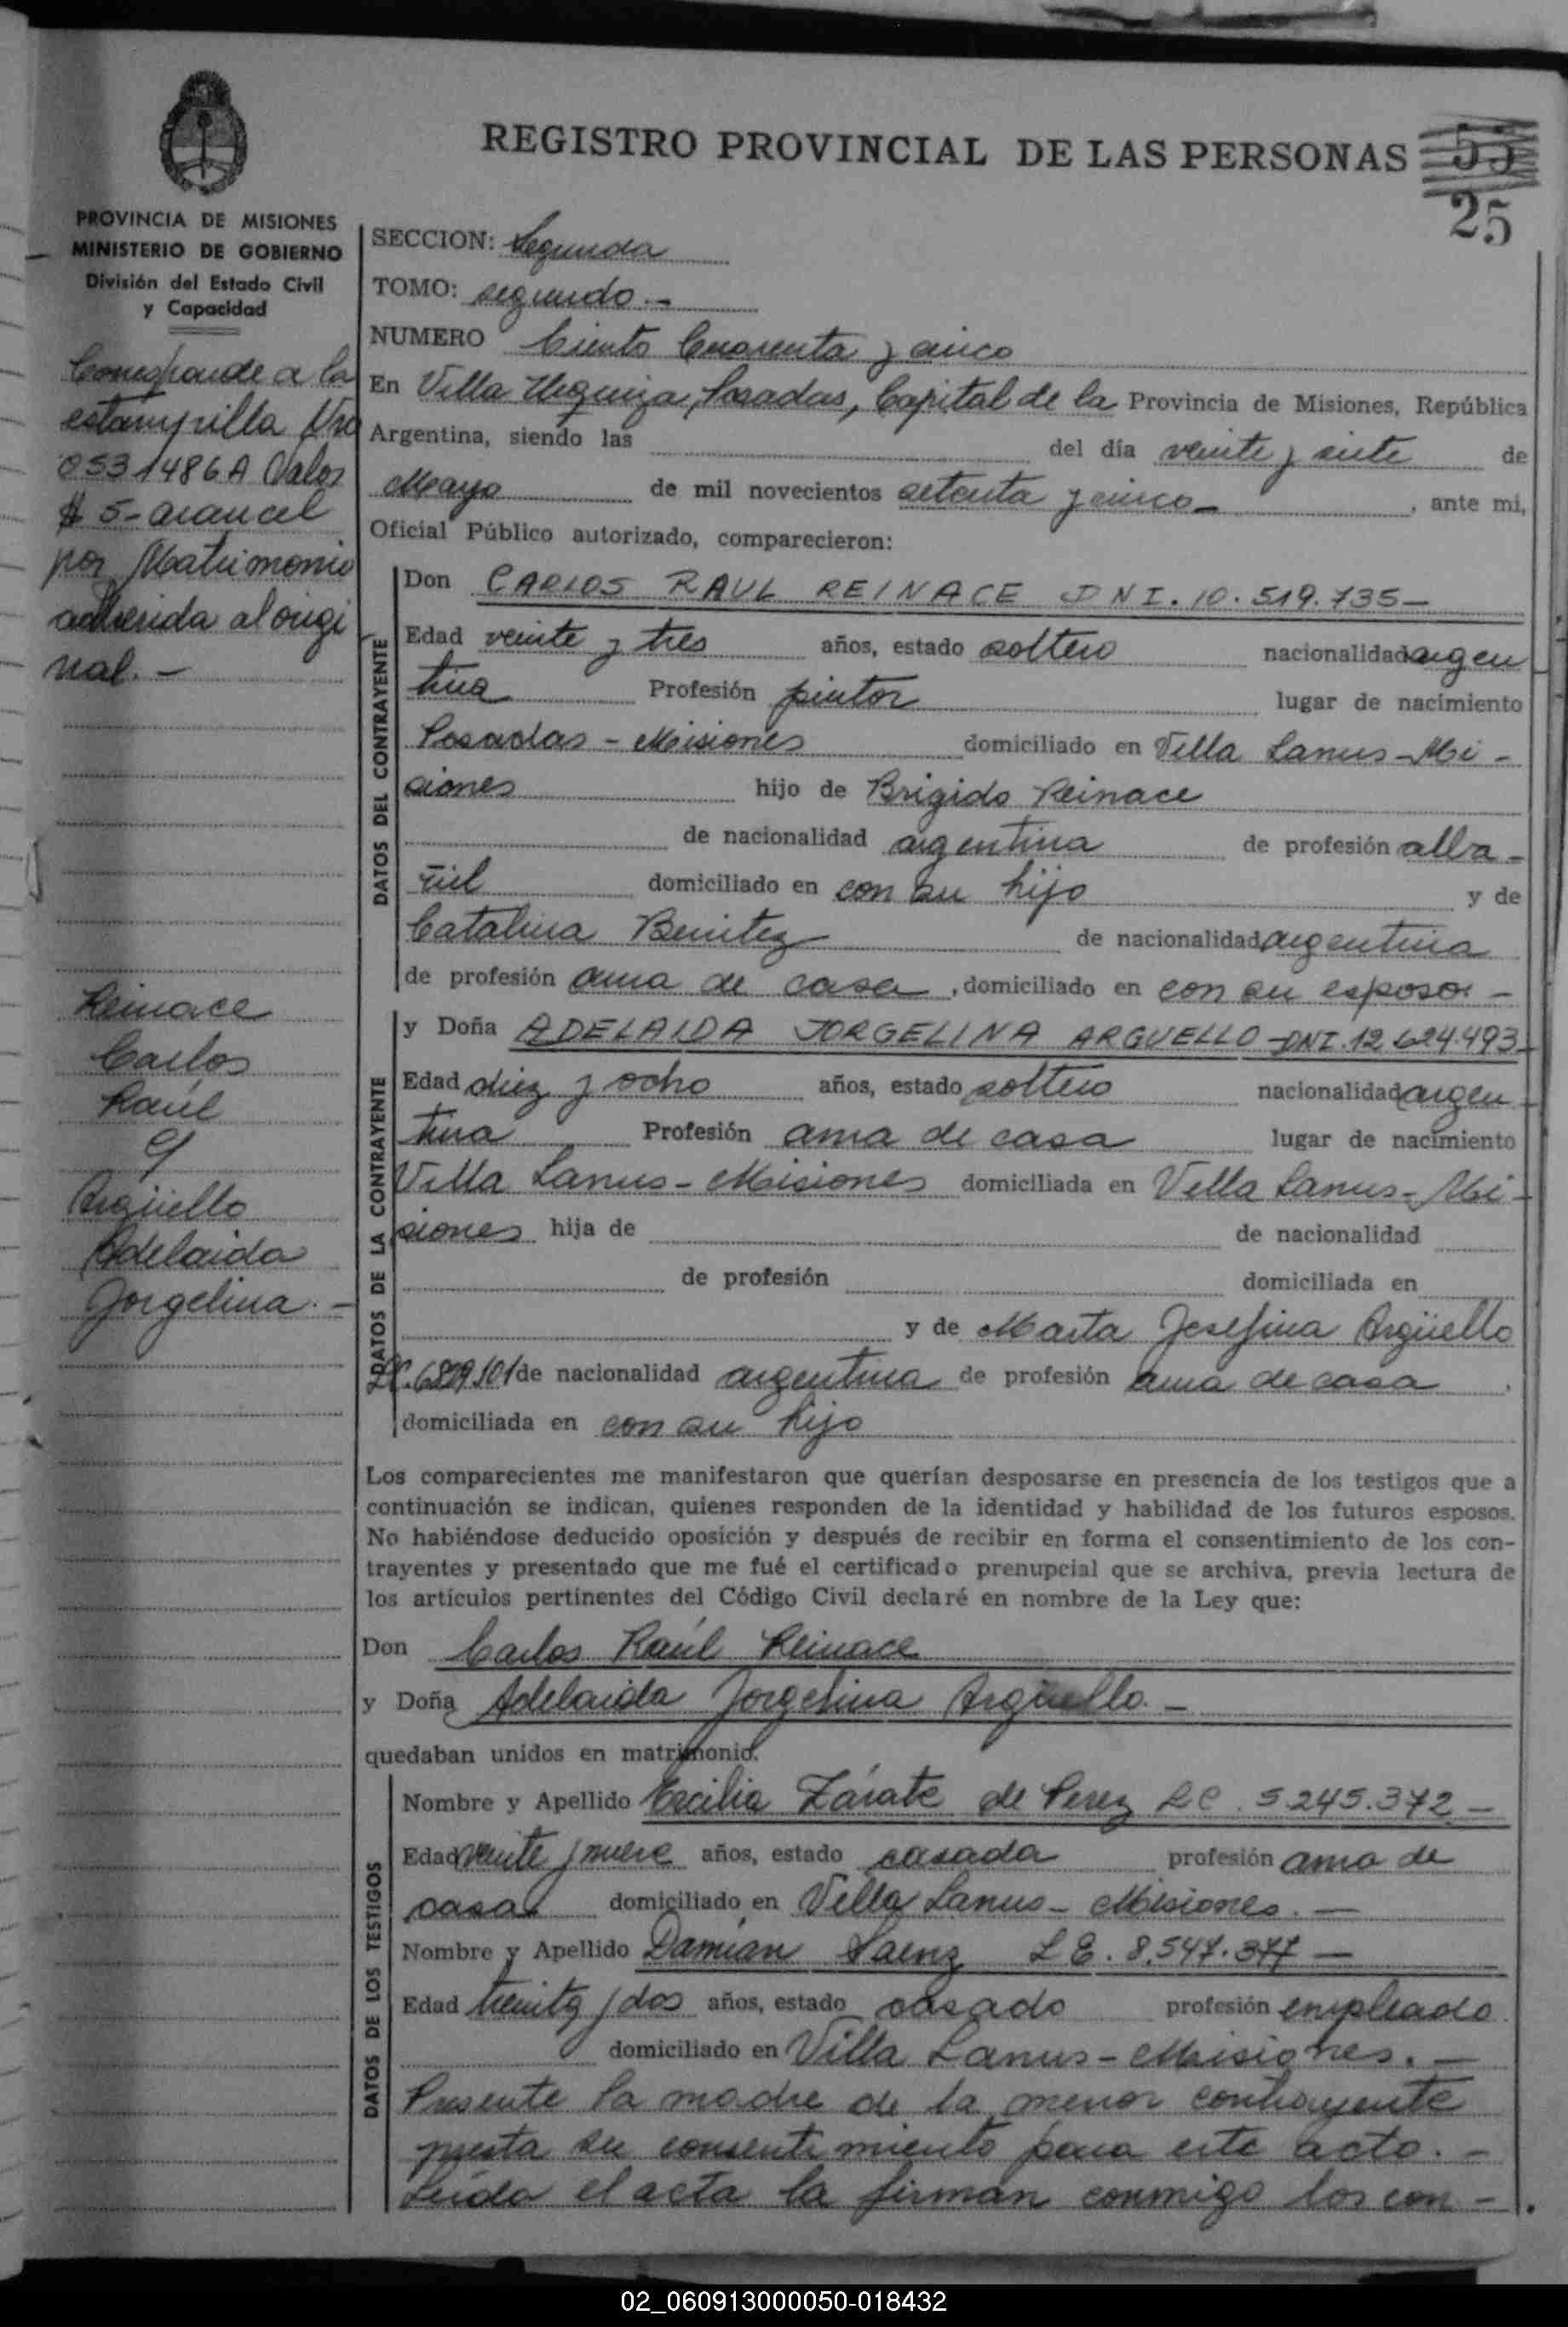 REGISTRO PROVINCIAL DE LAS PERSONAS 55
25
PROVINCIA DE MISIONES
MINISTERIO DE GOBIERNO
División del Estado Civil
y Capacidad
Corresponde a la
estampilla Nro
0531486A Valor
$ 5- arancel
por Matrimonio
adherida al origi
nal. -
Reinace
Carlos
Raúl
y
Argüello
Adelaida
Jorgelina. -
SECCION: Segunda
TOMO: segundo. -
NUMERO Ciento Cuarenta y cinco
En Villa Urquiza, Posadas, Capital de la Provincia de Misiones, República
Argentina, siendo las del día veinte y siete de
Mayo de mil novecientos setenta y cinco - , ante mi,
Oficial Público autorizado, comparecieron:
DATOS DEL CONTRAYENTE
Don CARLOS RAUL REINACE DNI. 10.519.735-
Edad veinte y tres años, estado soltero nacionalidad argen
tina Profesión pintor lugar de nacimiento
Posadas - Misiones domiciliado en Villa Lanus - Mi -
siones hijo de Brigido Reinace
de nacionalidad argentina de profesión alba -
ñil domiciliado en con su hijo y de
Catalina Benitez de nacionalidad argentina
de profesión ama de casa , domiciliado en con su esposo. -
DATOS DE LA CONTRAYENTE
y Doña ADELAIDA JORGELINA ARGUELLO - DNI. 12.624.493 -
Edad diez y ocho años, estado soltero nacionalidad argen -
tina Profesión ama de casa lugar de nacimiento
Villa Lanus - Misiones domiciliada en Villa Lanus - Mi -
siones hija de de nacionalidad
de profesión domiciliada en
y de Marta Josefina Argüello
de nacionalidad argentina de profesión ama de casa .
domiciliada en con su hijo
Los comparecientes me manifestaron que querían desposarse en presencia de los testigos que a
continuación se indican, quienes responden de la identidad y habilidad de los futuros esposos.
No habiéndose deducido oposición y después de recibir en forma el consentimiento de los con-
trayentes y presentado que me fué el certificado prenupcial que se archiva, previa lectura de
los artículos pertinentes del Código Civil declaré en nombre de la Ley que:
Don Carlos Raúl Reinace
y Doña Adelaida Jorgelina Argüello. -
quedaban unidos en matrimonio.
DATOS DE LOS TESTIGOS
Nombre y Apellido Cecilia Zárate de Perez LC. 5.245.372 -
Edad veinte y nueve años, estado casada profesión ama de
casa domiciliado en Villa Lanus - Misiones. -
Nombre y Apellido Damián Saenz LE. 8.547.377 -
Edad treinta y dos años, estado casado profesión empleado
domiciliado en Villa Lanus - Misiones. -
Presente la madre de la menor contrayente
presta su consentimiento para este acto. -
Leida el acta la firman conmigo los con -
02_060913000050-018432